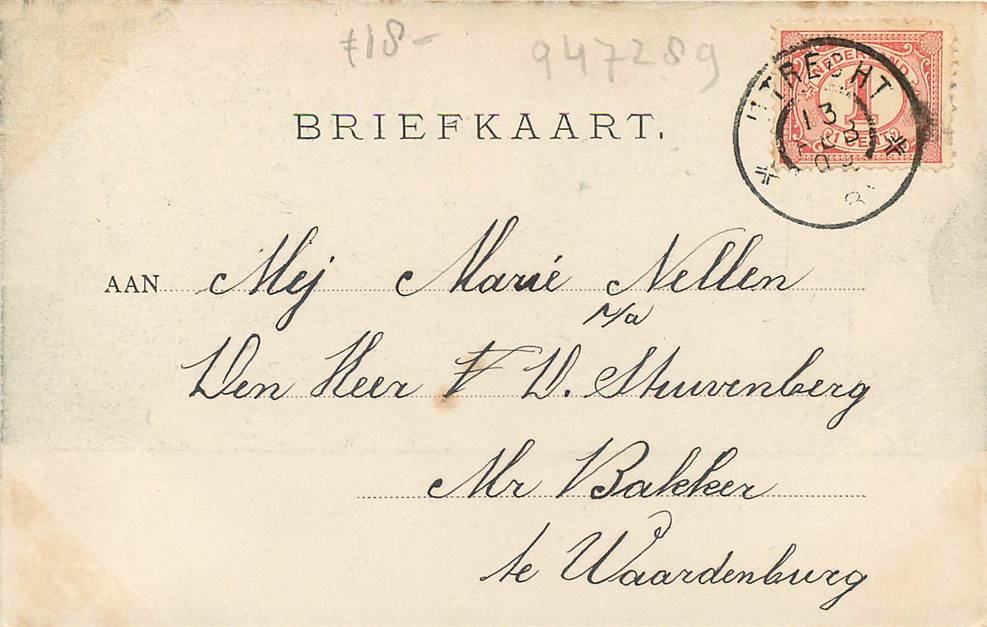 f18-
947289
NEDERLAND
1
CENT
UTRECHT
13
FEB
BRIEFKAART.
AAN Mej Marié Nellen
p/a
Den Heer F V. Stuivenberg
Mr Bakker
te Waardenburg